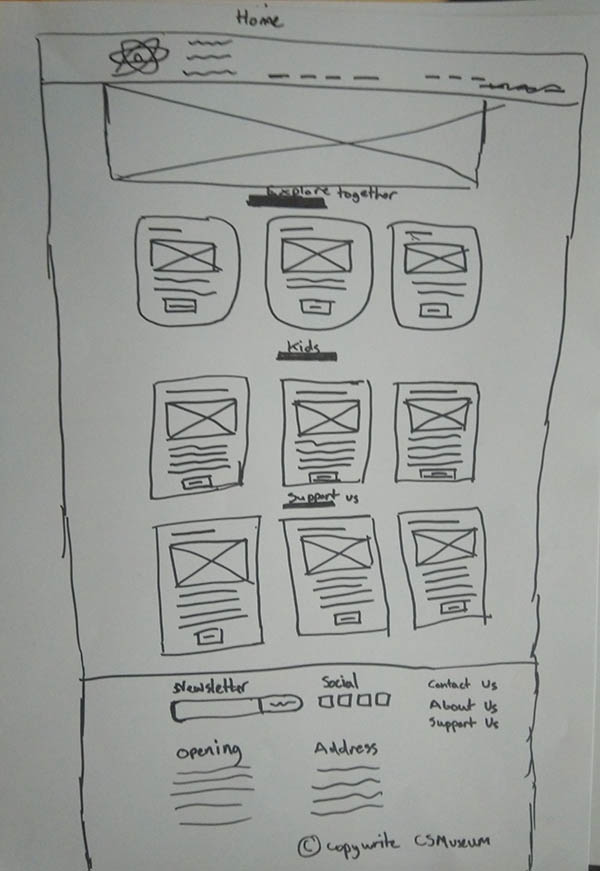 Home
Explore together
Kids
Support us
Newsletter
Social
Contact Us
About Us
Support Us
Opening
Address
© copywrite CSMuseum